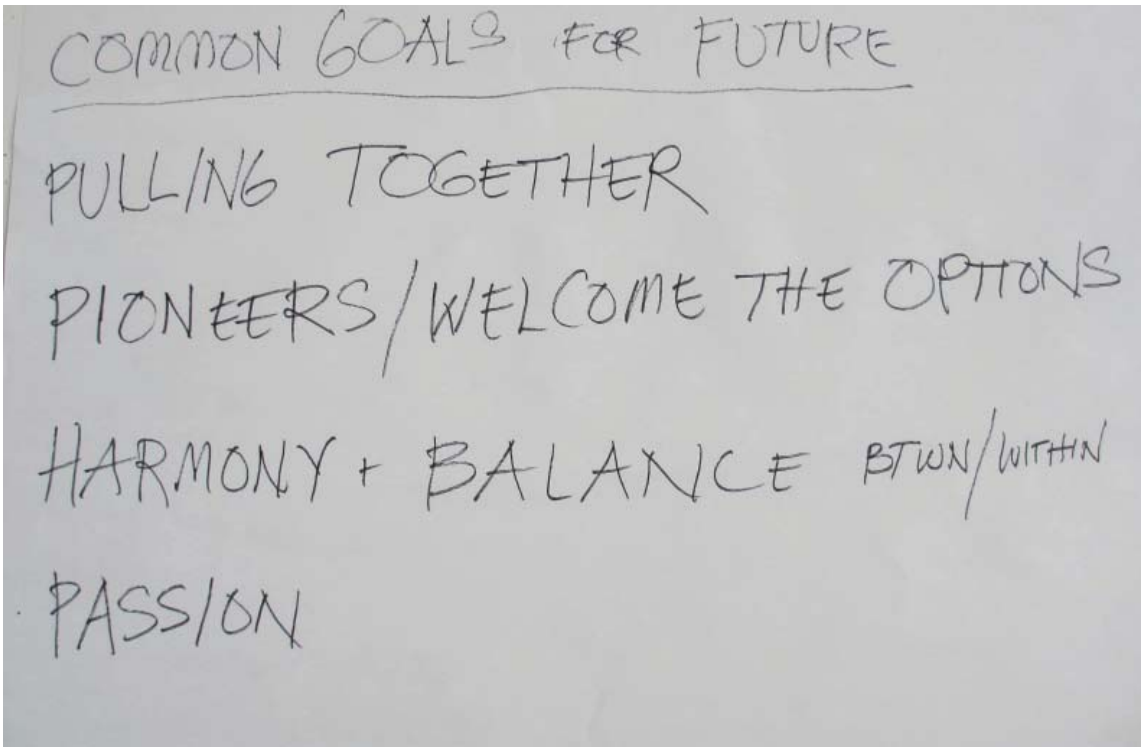 COMMON GOALS FOR FUTURE
PULLING TOGETHER
PIONEERS/WELCOME THE OPTIONS
HARMONY + BALANCE BTWN/WITHIN
PASSION